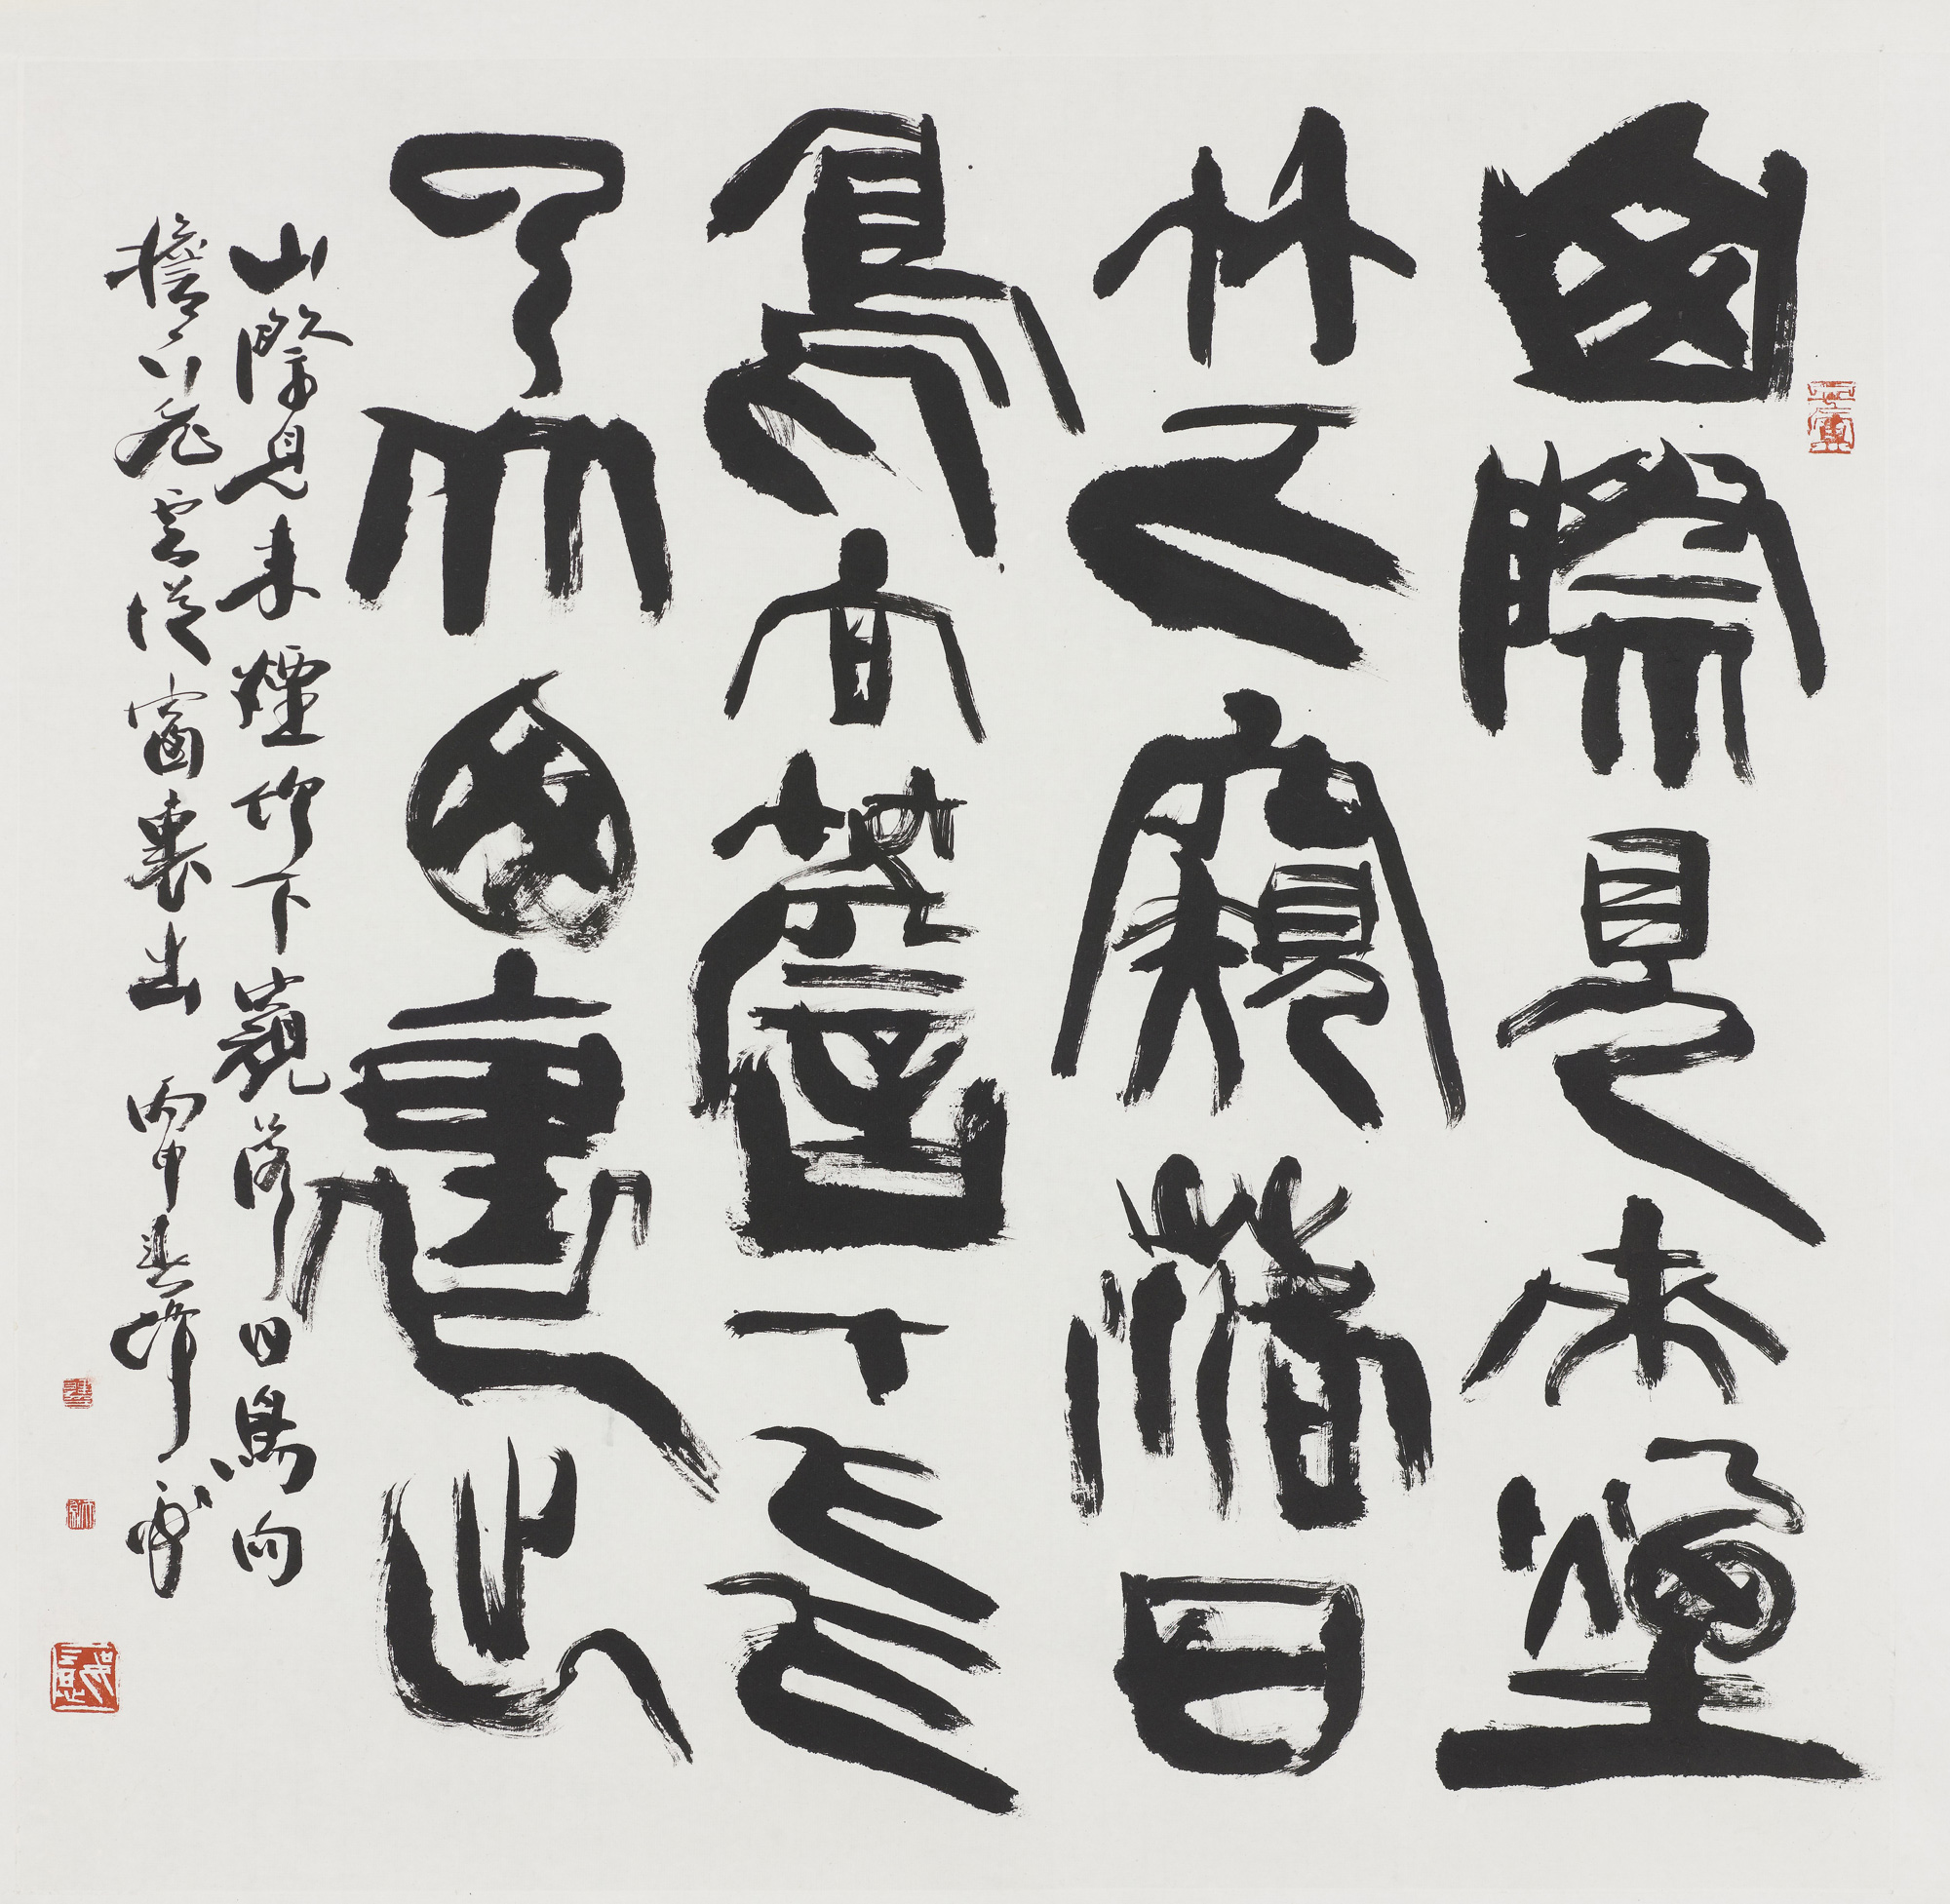 山際見來煙
竹下窺落日
鳥向檐下飛
雲从窗裏出
山際見來煙竹下窺落日鳥向
檐下飛雲從窗裏出 丙申春